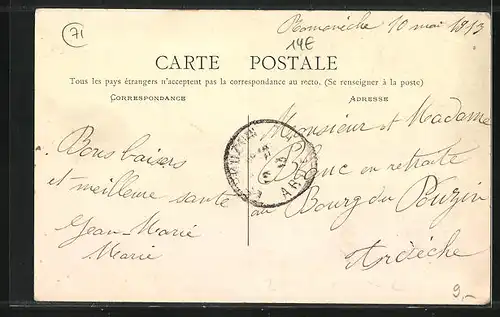 71
10 mai 1913
14E
CARTE POSTALE
Tous les pays étrangers n'acceptent pas la correspondance au recto. (Se renseigner à la poste)
CORRESPONDANCE
ADRESSE
Monsieur et Madame
Bons baisers
Blanc en retraite
et meilleure santé
au Bourg du Pouzin
Jean Marie
Marie
Ardèche
9,-